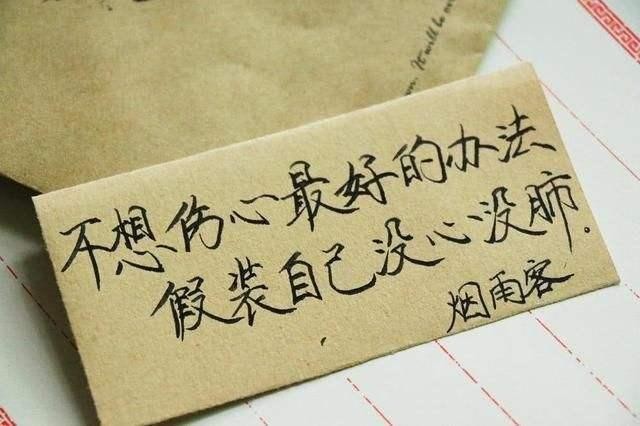 It will be
不想伤心最好的办法
假装自己没心没肺.
烟雨客